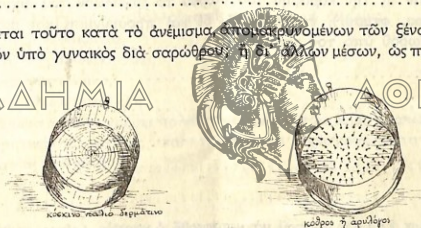 ται τοῦτο κατὰ τὸ ἀνέμισμα, ἀπομακρυνομένων τῶν ξένω
ῶν ὑπὸ γυναικὸς διὰ σαρώθρου; ἢ δι' ἄλλων μέσων, ὡς π
ΔΗΜΙΑ ΑΘ
κόσκινο παλιὸ δερμάτινο
κόθρος ἢ ἀρυλόγος